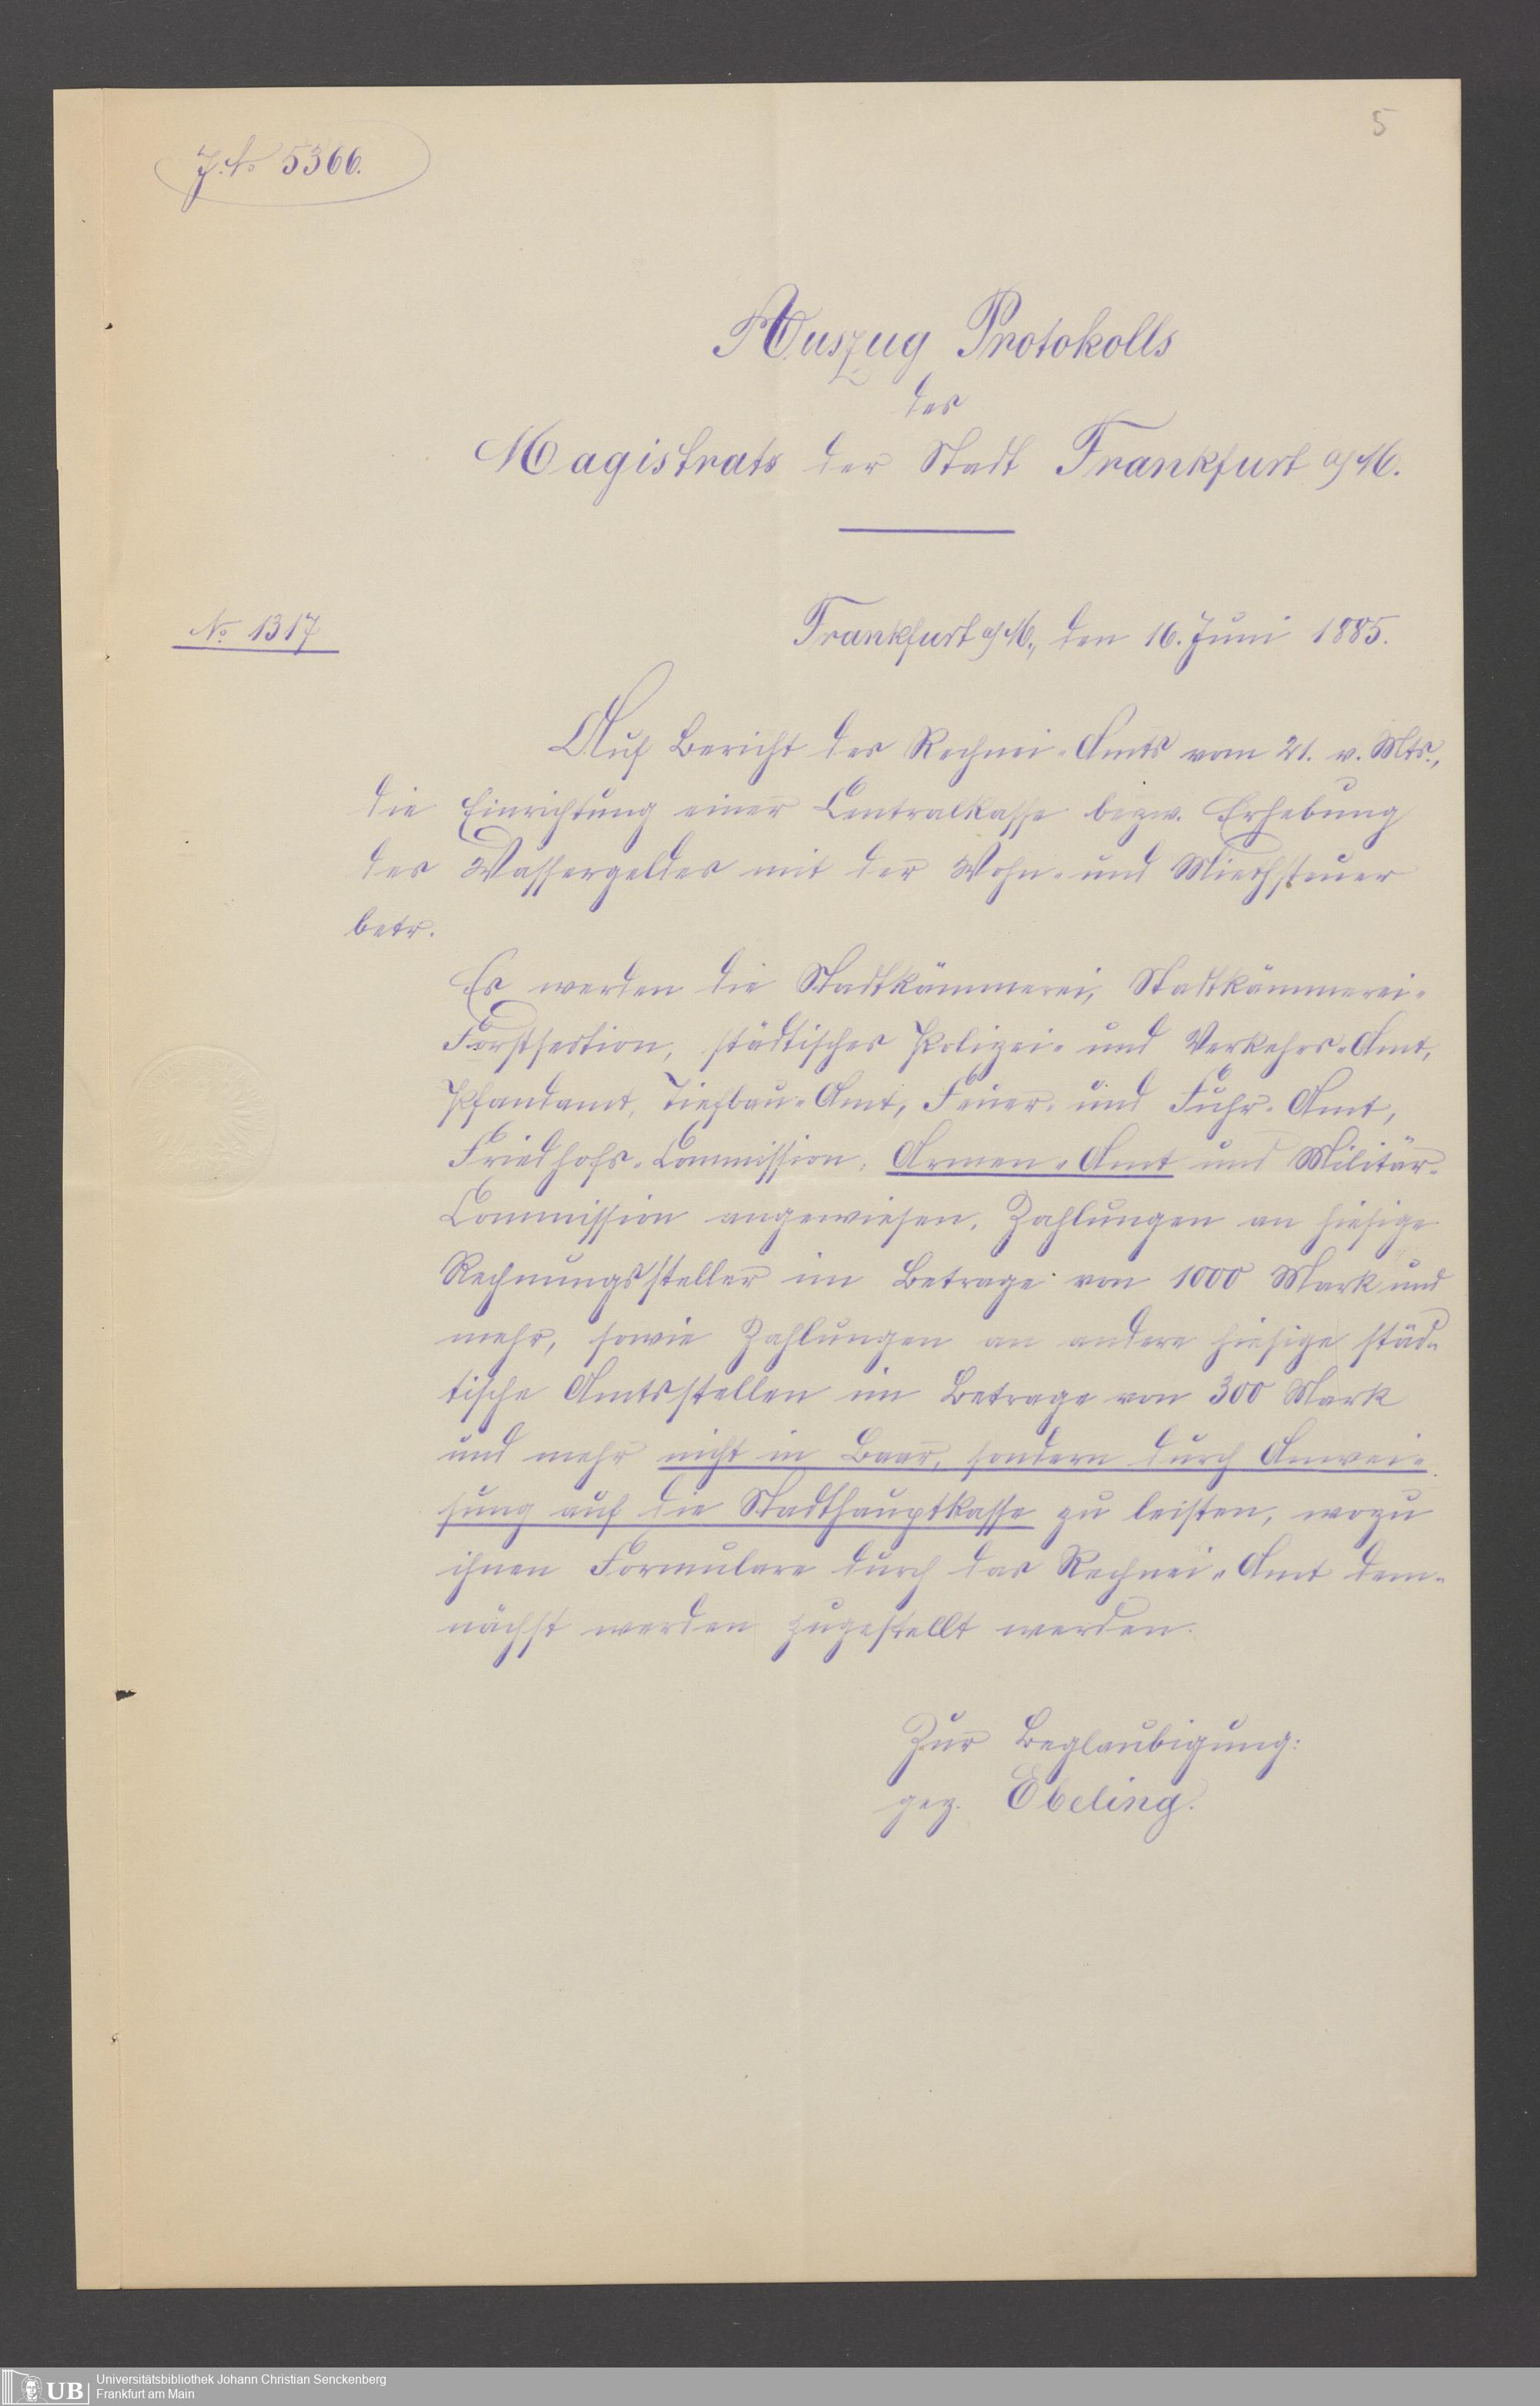 5
J. No 5366.
Auszug Protokolls
des
Magistrats der Stadt Frankfurt a/M.
No 1317
Frankfurt a/M., den 16. Juni 1885.
Auf Bericht des Rechnei-Amts vom 21. v. Mts.,
die Einrichtung einer Centralkasse bezw. Erhebung
des Wassergeldes mit der Wohn- und Miethsteuer
betr.
Es werden die Stadtkämmerei, Stadtkämmerei-
Forstsection, städtisches Polizei- und Verkehrs-Amt,
Pfandamt, Tiefbau-Amt, Feuer- und Fuhr-Amt,
Friedhofs-Commission, Armen-Amt und Militär-
Commission angewiesen, Zahlungen an hiesige
Rechnungssteller im Betrage von 1000 Mark und
mehr, sowie Zahlungen an andere hiesige städ-
tische Amtsstellen im Betrage von 300 Mark
und mehr nicht in Baar, sondern durch Anwei-
sung auf die Stadthauptkasse zu leisten, wozu
ihnen Formulare durch das Rechnei-Amt dem-
nächst werden zugestellt werden.
Zur Beglaubigung:
gez. Ebeling.
UB
Universitätsbibliothek Johann Christian Senckenberg
Frankfurt am Main